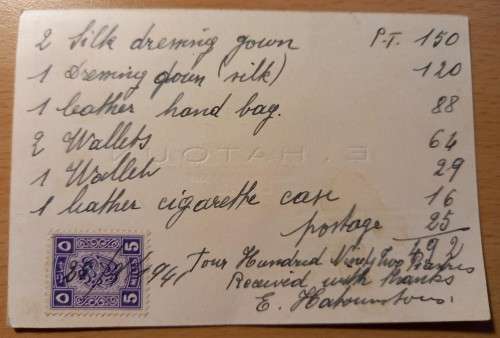 2 Silk dressing gown P.T. 150
1 Dressing gown (silk) 120
1 leather hand bag. 88
2 Wallets 64
E. HATOUN
1 Wallet 29
1 leather cigarette case 16
postage 25
492
Four Hundred Ninety Two Piastres
Received with thanks
E.
1941
5 5